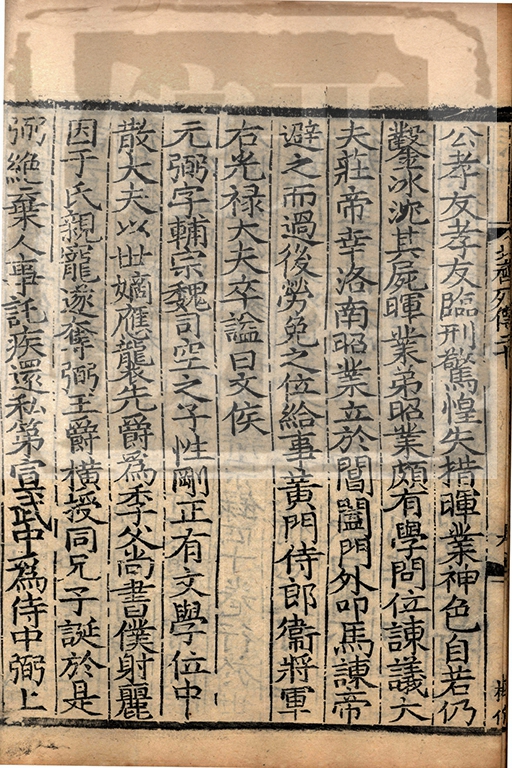 公孝友孝友臨刑驚惶失措暉業神色自若仍
鑿冰沈其屍暉業弟昭業頗有學問位諫議大
夫莊帝幸洛南昭業立於閶闔門外叩馬諫帝
避之而過後勞免之位給事黃門侍郎衞將軍
右光禄大夫卒謚曰文侯
元弼字輔宗魏司空之子性剛正有文學位中
散大夫以世嫡應襲先爵爲季父尚書僕射麗
因于氏親寵遂奪弼王爵橫授同兄子誕於是
弼絶棄人事託疾還私第宣武中爲侍中弼上